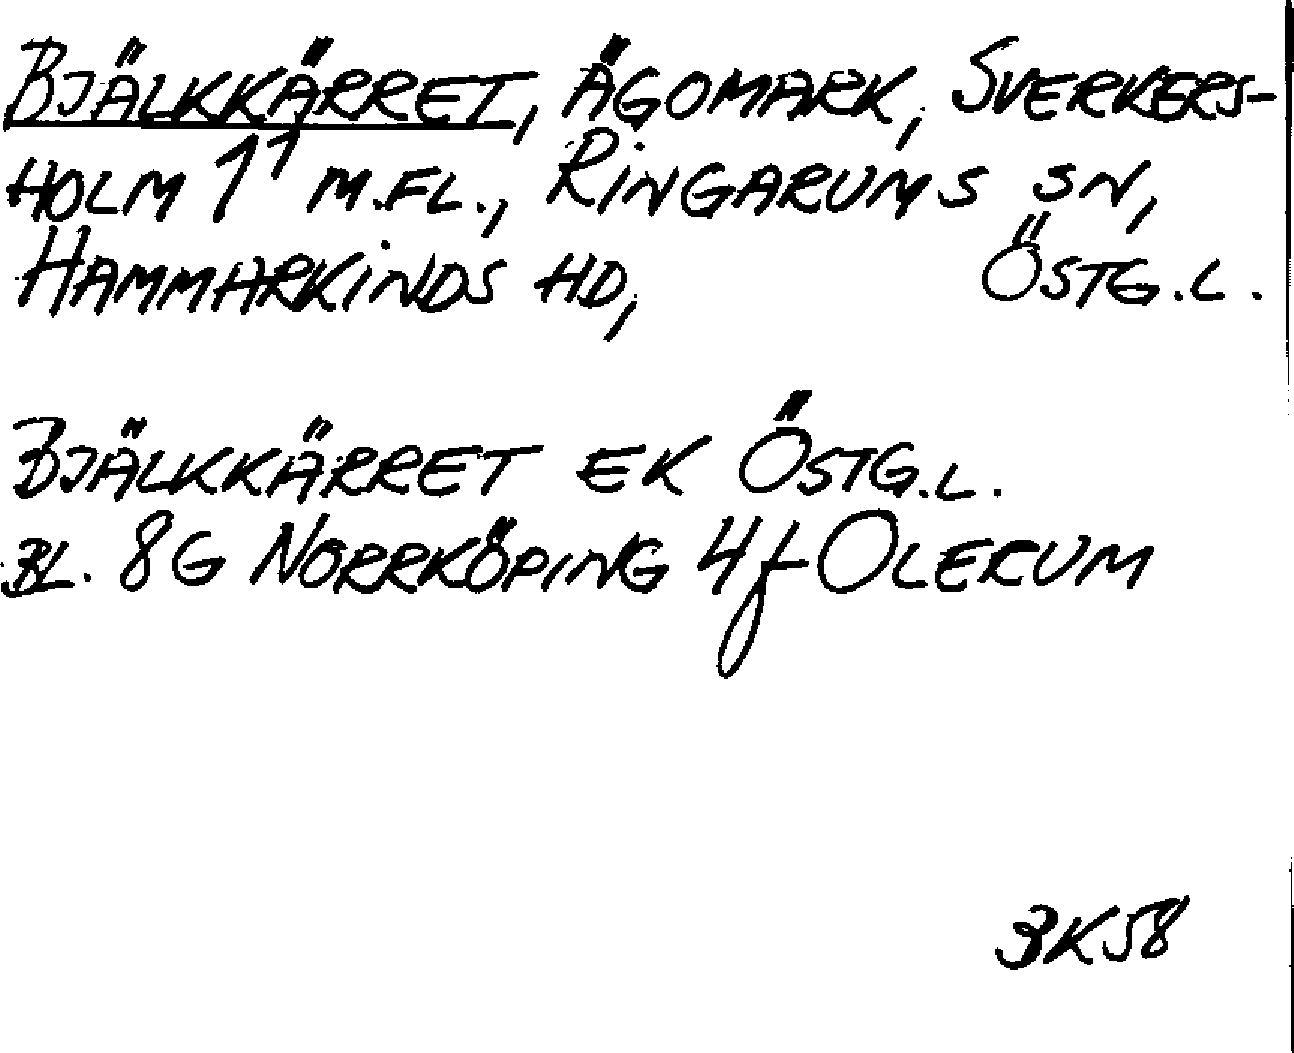 BJÄLKKÄRRET, ÄGOMARK, SVERKERS-
HOLM 1¹ M.FL., RINGARUMS SN,
HAMMARKINDS HD, ÖSTG.L.
BJÄLKKÄRRET EK ÖSTG.L.
BL. 8G NORRKÖPING 4f OLERUM
BK58